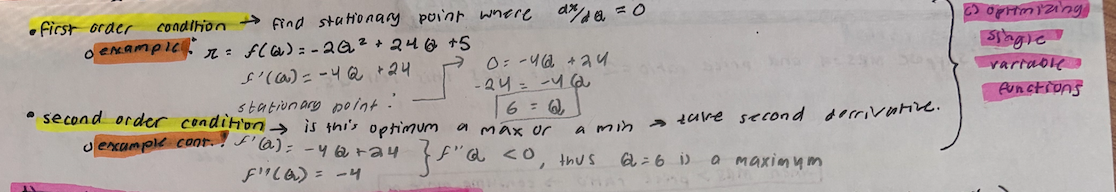 • first order condition → find stationary point where dπ/dQ = 0
o example: π = f(Q) = -2Q² + 24Q + 5
f'(Q) = -4Q + 24
stationary point:
0 = -4Q + 24
-24 = -4Q
6 = Q
• second order condition → is this optimum a max or a min → take second derrivative.
o example cont.: f'(Q) = -4Q + 24 } f''Q < 0, thus Q = 6 is a maximum
f''(Q) = -4
c) optimizing
single
variable
functions